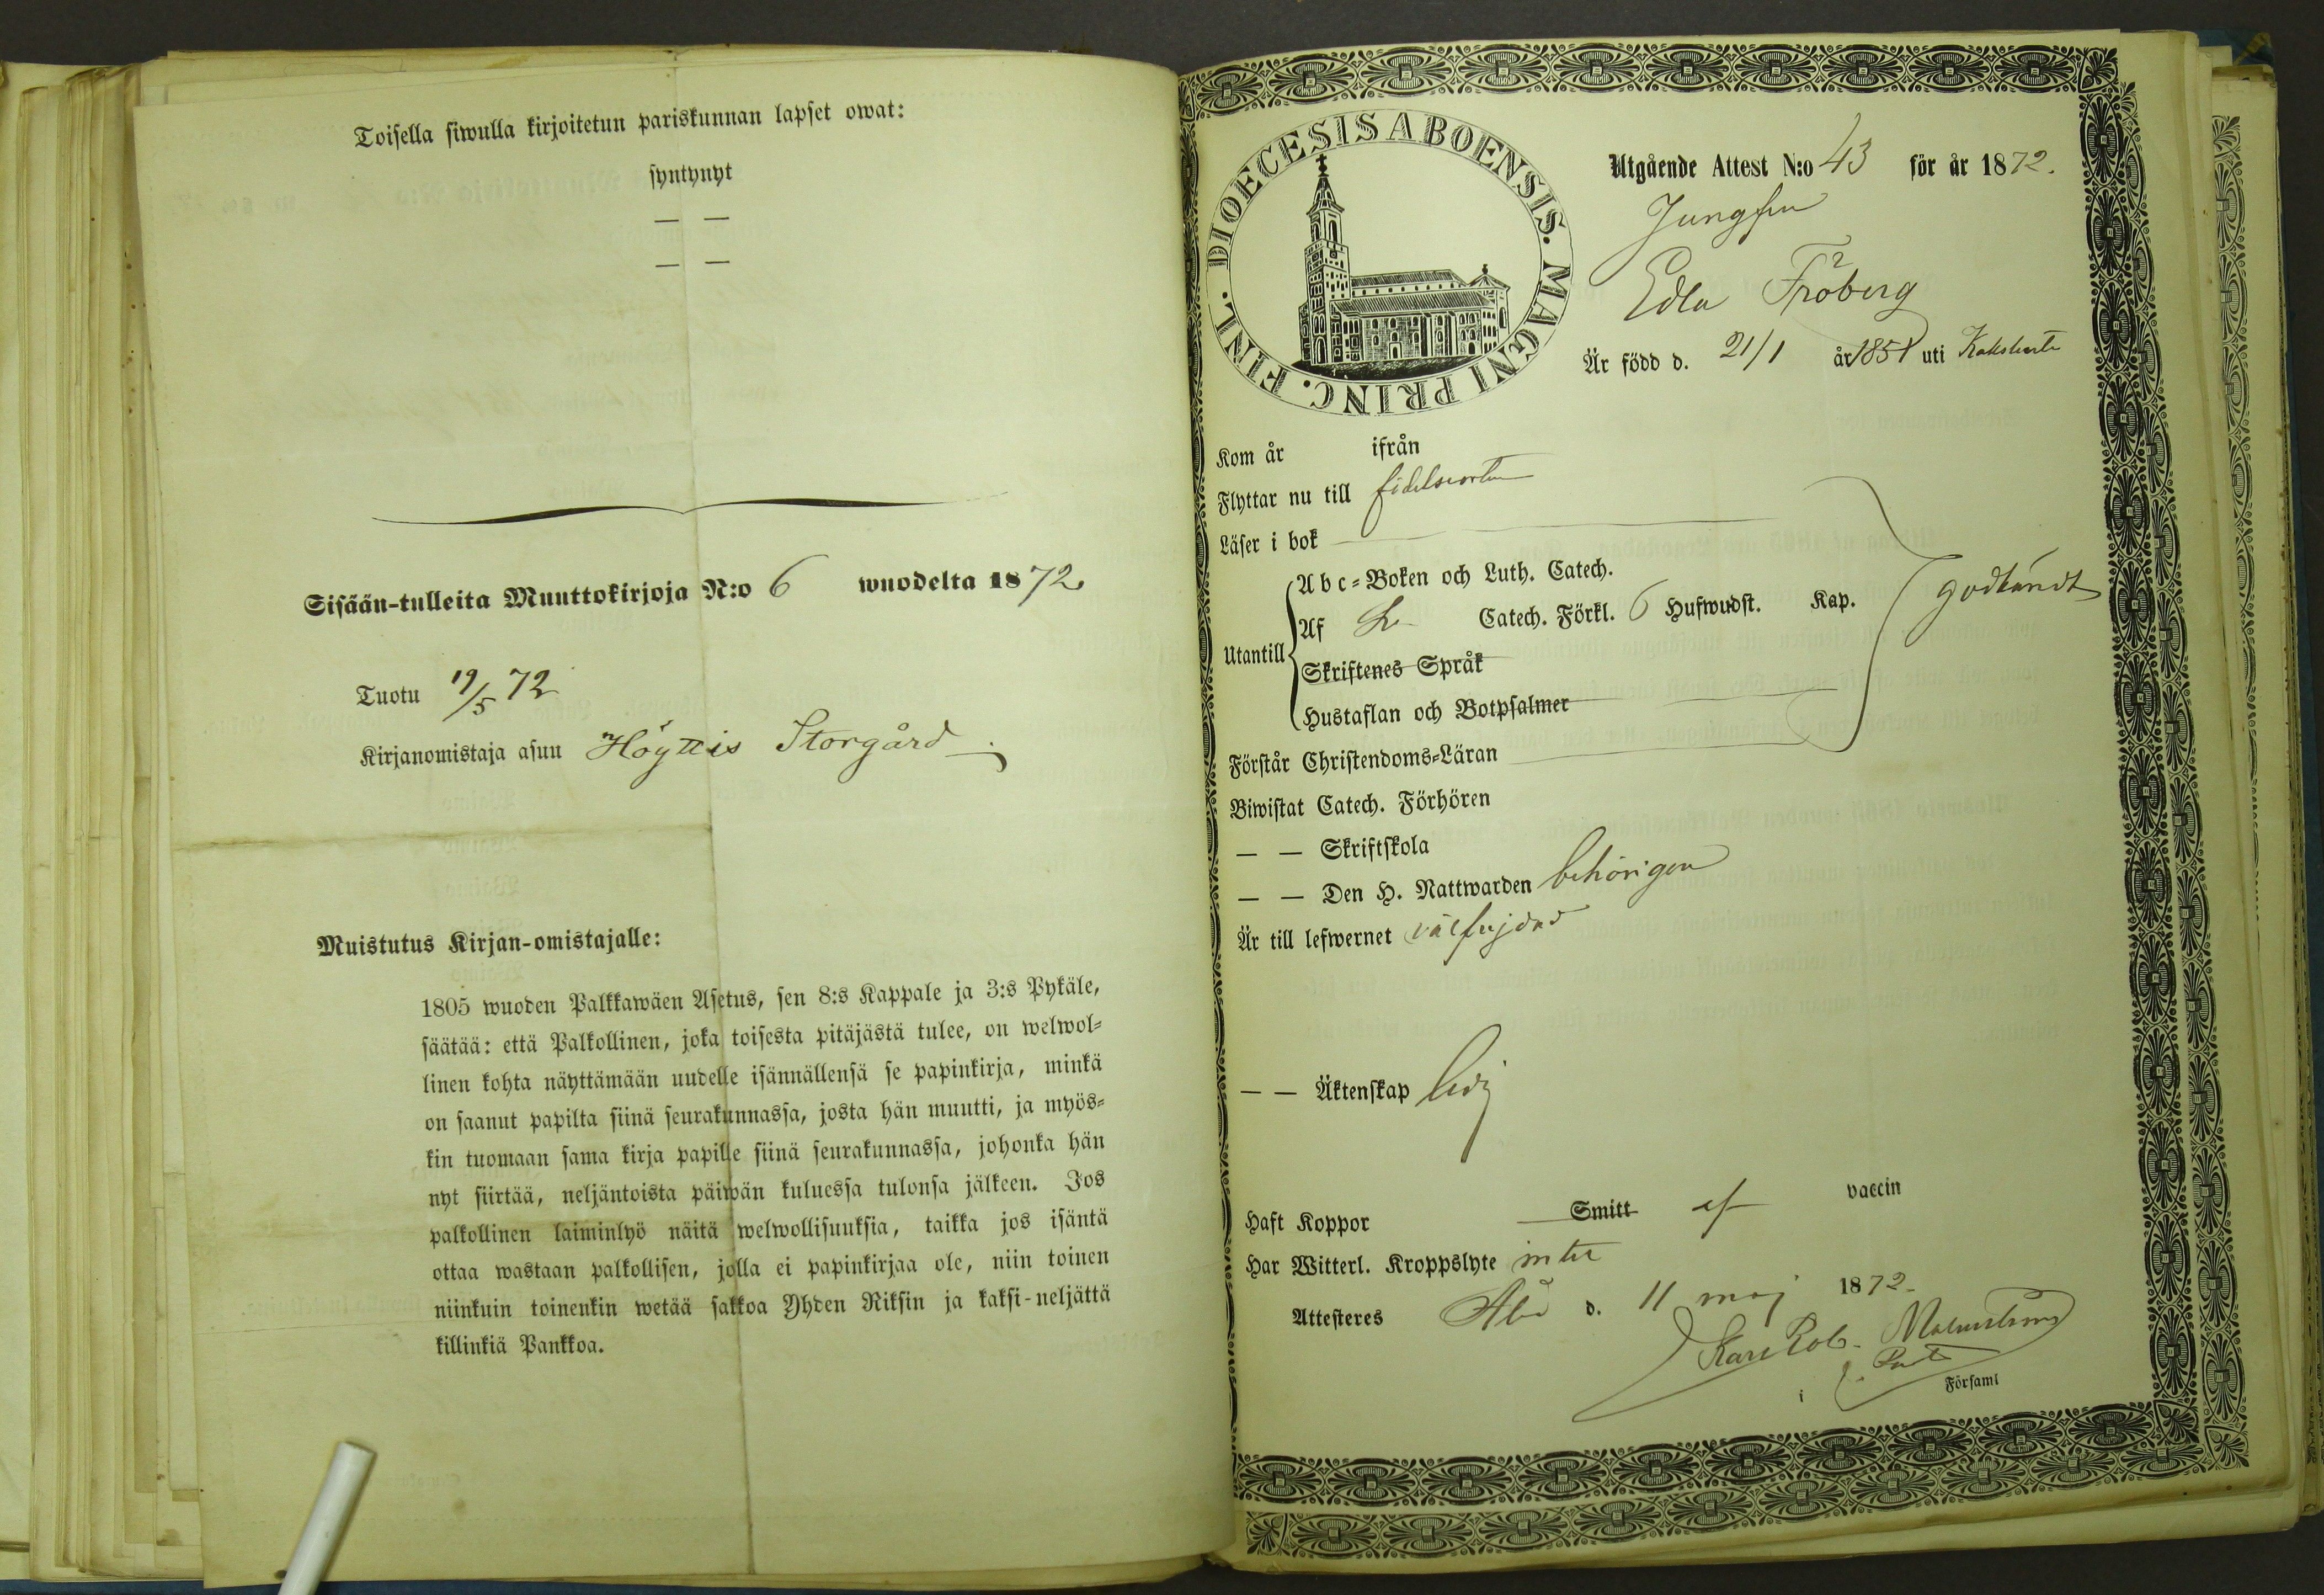 Toisella siwulla kirjoitetun pariskunnan lapset owat:
syntynyt
— —
— —
Sisään-tulleita Muuttokirjoja N:o 6 wuodelta 1872
Tuotu 19/5 72
Kirjanomistaja asuu Höyttis Storgård.
Muistutus Kirjan-omistajalle:
1805 wuoden Palkkawäen Asetus, sen 8:s Kappale ja 3:s Pykäle,
säätää: että Palkollinen, joka toisesta pitäjästä tulee, on welwol-
linen kohta näyttämään uudelle isännällensä se papinkirja, minkä
on saanut papilta siinä seurakunnassa, josta hän muutti, ja myös-
kin tuomaan sama kirja papille siinä seurakunnassa, johonka hän
nyt siirtää, neljäntoista päiwän kuluessa tulonsa jälkeen. Jos
palkollinen laiminlyö näitä welwollisuuksia, taikka jos isäntä
ottaa wastaan palkollisen, jolla ei papinkirjaa ole, niin toinen
niinkuin toinenkin wetää sakkoa Yhden Riksin ja kaksi-neljättä
killinkiä Pankkoa.
DIOECESIS ABOENSIS. MAGNI PRINC. FINL.
Utgående Attest N:o 43 för år 1872.
Jungfru
Edla Fröberg
Är född d. 21/1 år 1851 uti
Kom år ifrån
Flyttar nu till födelseorten
Läser i bok
Abc-Boken och Luth. Catech.
Utantill Af Catech. Förkl. 6 Hufwudst. Kap. godkändt
Skriftenes Språk
Hustaflan och Botpsalmer
Förstår Christendoms-Läran
Biwistat Catech. Förhören
— — Skriftskola
— — Den H. Nattwarden behörigen
Är till lefwernet välfrejdad
— — Äktenskap ledig
Haft Koppor Smitt ef vaccin
Har Witterl. Kroppslyte inte
Attesteres Åbo d. 11 maj 1872.
Karl Rob. Malmström
i Församl